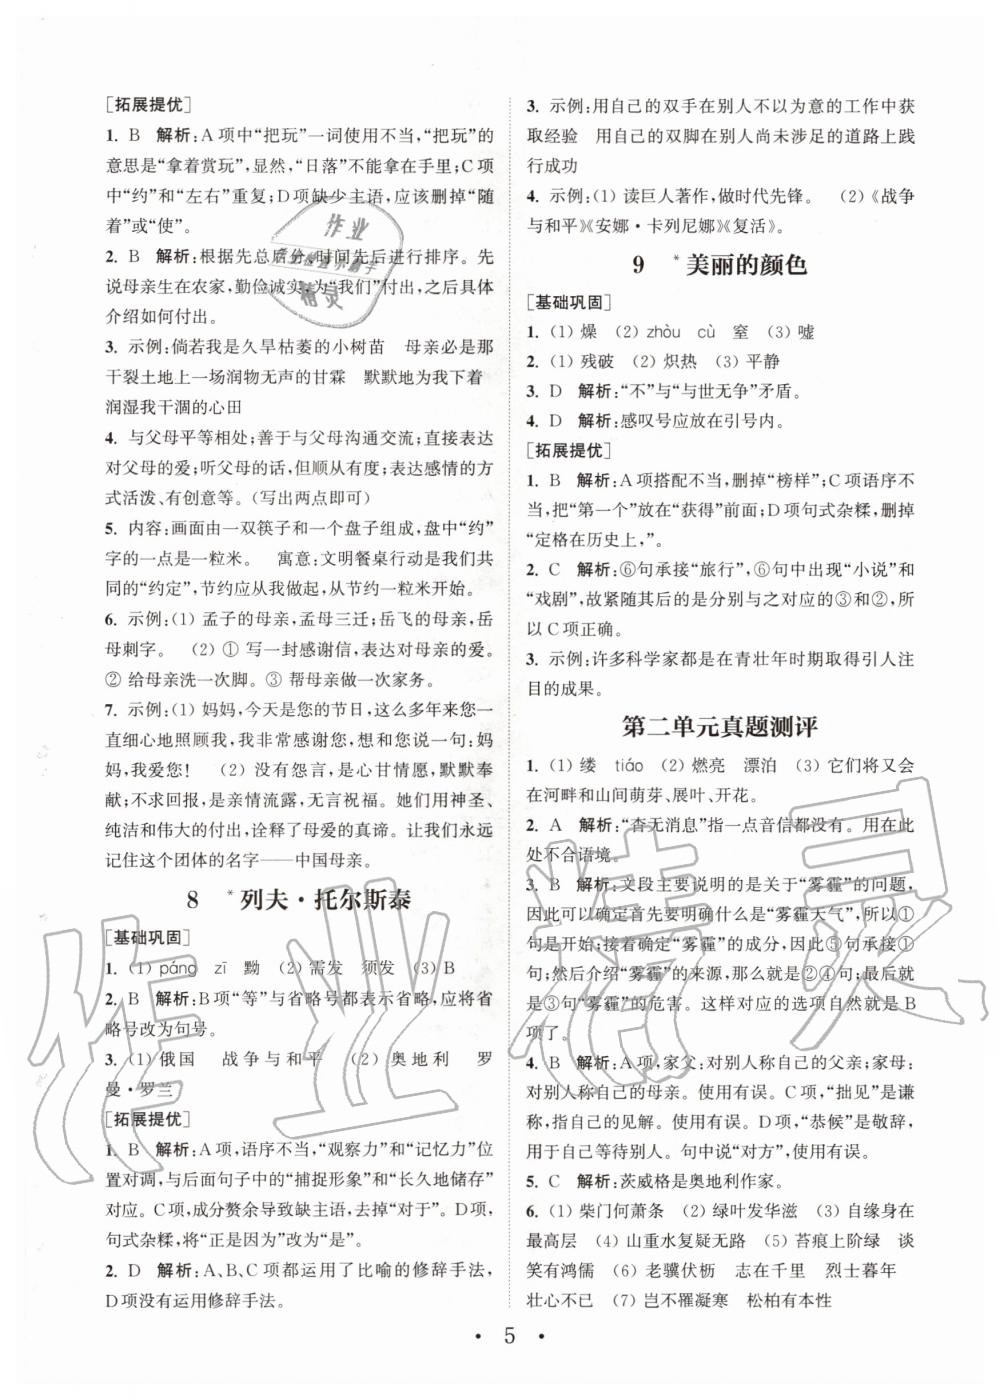 [拓展提优]
1. B 解析:A项中“把玩”一词使用不当,“把玩”的
意思是“拿着赏玩”,显然,“日落”不能拿在手里;C项
中“约”和“左右”重复;D项缺少主语,应该删掉“随
着”或“使”。
2. B 解析:根据先总后分,时间先后进行排序。先
说母亲生在农家,勤俭诚实,为“我们”付出,之后具体
介绍如何付出。
3. 示例:倘若我是久旱枯萎的小树苗 母亲必是那
干裂土地上一场润物无声的甘霖 默默地为我下着
润湿我干涸的心田
4. 与父母平等相处;善于与父母沟通交流;直接表达
对父母的爱;听父母的话,但顺从有度;表达感情的方
式活泼、有创意等。(写出两点即可)
5. 内容:画面由一双筷子和一个盘子组成,盘中“约”
字的一点是一粒米。 寓意:文明餐桌行动是我们共
同的“约定”,节约应从我做起,从节约一粒米开始。
6. 示例:(1) 孟子的母亲,孟母三迁;岳飞的母亲,岳
母刺字。 (2) ① 写一封感谢信,表达对母亲的爱。
② 给母亲洗一次脚。③ 帮母亲做一次家务。
7. 示例:(1) 妈妈,今天是您的节日,这么多年来您一
直细心地照顾我,我非常感谢您,想对您说一句:妈
妈,我爱您! (2) 没有怨言,是心甘情愿,默默奉
献;不求回报,是亲情流露,无言祝福。她们用神圣、
纯洁和伟大的付出,诠释了母爱的真谛。让我们永远
记住这个团体的名字——中国母亲。
8 *列夫·托尔斯泰
[基础巩固]
1. (1) páng zī 黝 (2) 需发 须发 (3) B
2. B 解析:B项“等”与省略号都表示省略,应将省
略号改为句号。
3. (1) 俄国 战争与和平 (2) 奥地利 罗
曼·罗兰
[拓展提优]
1. B 解析:A项,语序不当,“观察力”和“记忆力”位
置对调,与后面句子中的“捕捉形象”和“长久地储存”
对应。C项,成分赘余导致缺主语,去掉“对于”。D项,
句式杂糅,将“正是因为”改为“是”。
2. D 解析:A、B、C项都运用了比喻的修辞手法,
D项没有运用修辞手法。
3. 示例:用自己的双手在别人不以为意的工作中获
取经验 用自己的双脚在别人尚未涉足的道路上践
行成功
4. 示例:(1) 读巨人著作,做时代先锋。 (2)《战争
与和平》《安娜·卡列尼娜》《复活》。
9 *美丽的颜色
[基础巩固]
1. (1) 燥 (2) zhòu cù 窒 (3) 嘘
2. (1) 残破 (2) 炽热 (3) 平静
3. D 解析:“不”与“与世无争”矛盾。
4. D 解析:感叹号应放在引号内。
[拓展提优]
1. B 解析:A项搭配不当,删掉“榜样”;C项语序不
当,把“第一个”放在“获得”前面;D项句式杂糅,删掉
“定格在历史上,”。
2. C 解析:⑥句承接“旅行”,⑥句中出现“小说”和
“戏剧”,故紧随其后的是分别与之对应的③和②,所
以C项正确。
3. 示例:许多科学家都是在青壮年时期取得引人注
目的成果。
第二单元真题测评
1. (1) 缕 tiáo (2) 燃亮 漂泊 (3) 它们将又会
在河畔和山间萌芽、展叶、开花。
2. A 解析:“杳无消息”指一点音信都没有。用在此
处不合语境。
3. B 解析:文段主要说明的是关于“雾霾”的问题,
因此可以确定首先要明确什么是“雾霾天气”,所以①
句是开始;接着交代“雾霾”的成分,因此⑤句承接①
句;然后介绍“雾霾”的来源,那么就是②④句;最后就
是③句“雾霾”的危害。这样对应的选项自然就是B
项了。
4. B 解析:A项,家父:对别人称自己的父亲;家母:
对别人称自己的母亲。使用有误。C项,“拙见”是谦
称,指自己的见解。使用有误。D项,“恭候”是敬辞,用
于自己等待别人。句中说“对方”,使用有误。
5. C 解析:茨威格是奥地利作家。
6. (1) 柴门何萧条 (2) 绿叶发华滋 (3) 自缘身在
最高层 (4) 山重水复疑无路 (5) 苔痕上阶绿 谈
笑有鸿儒 (6) 老骥伏枥 志在千里 烈士暮年
壮心不已 (7) 岂不罹凝寒 松柏有本性
· 5 ·
作业
精灵
作业精灵